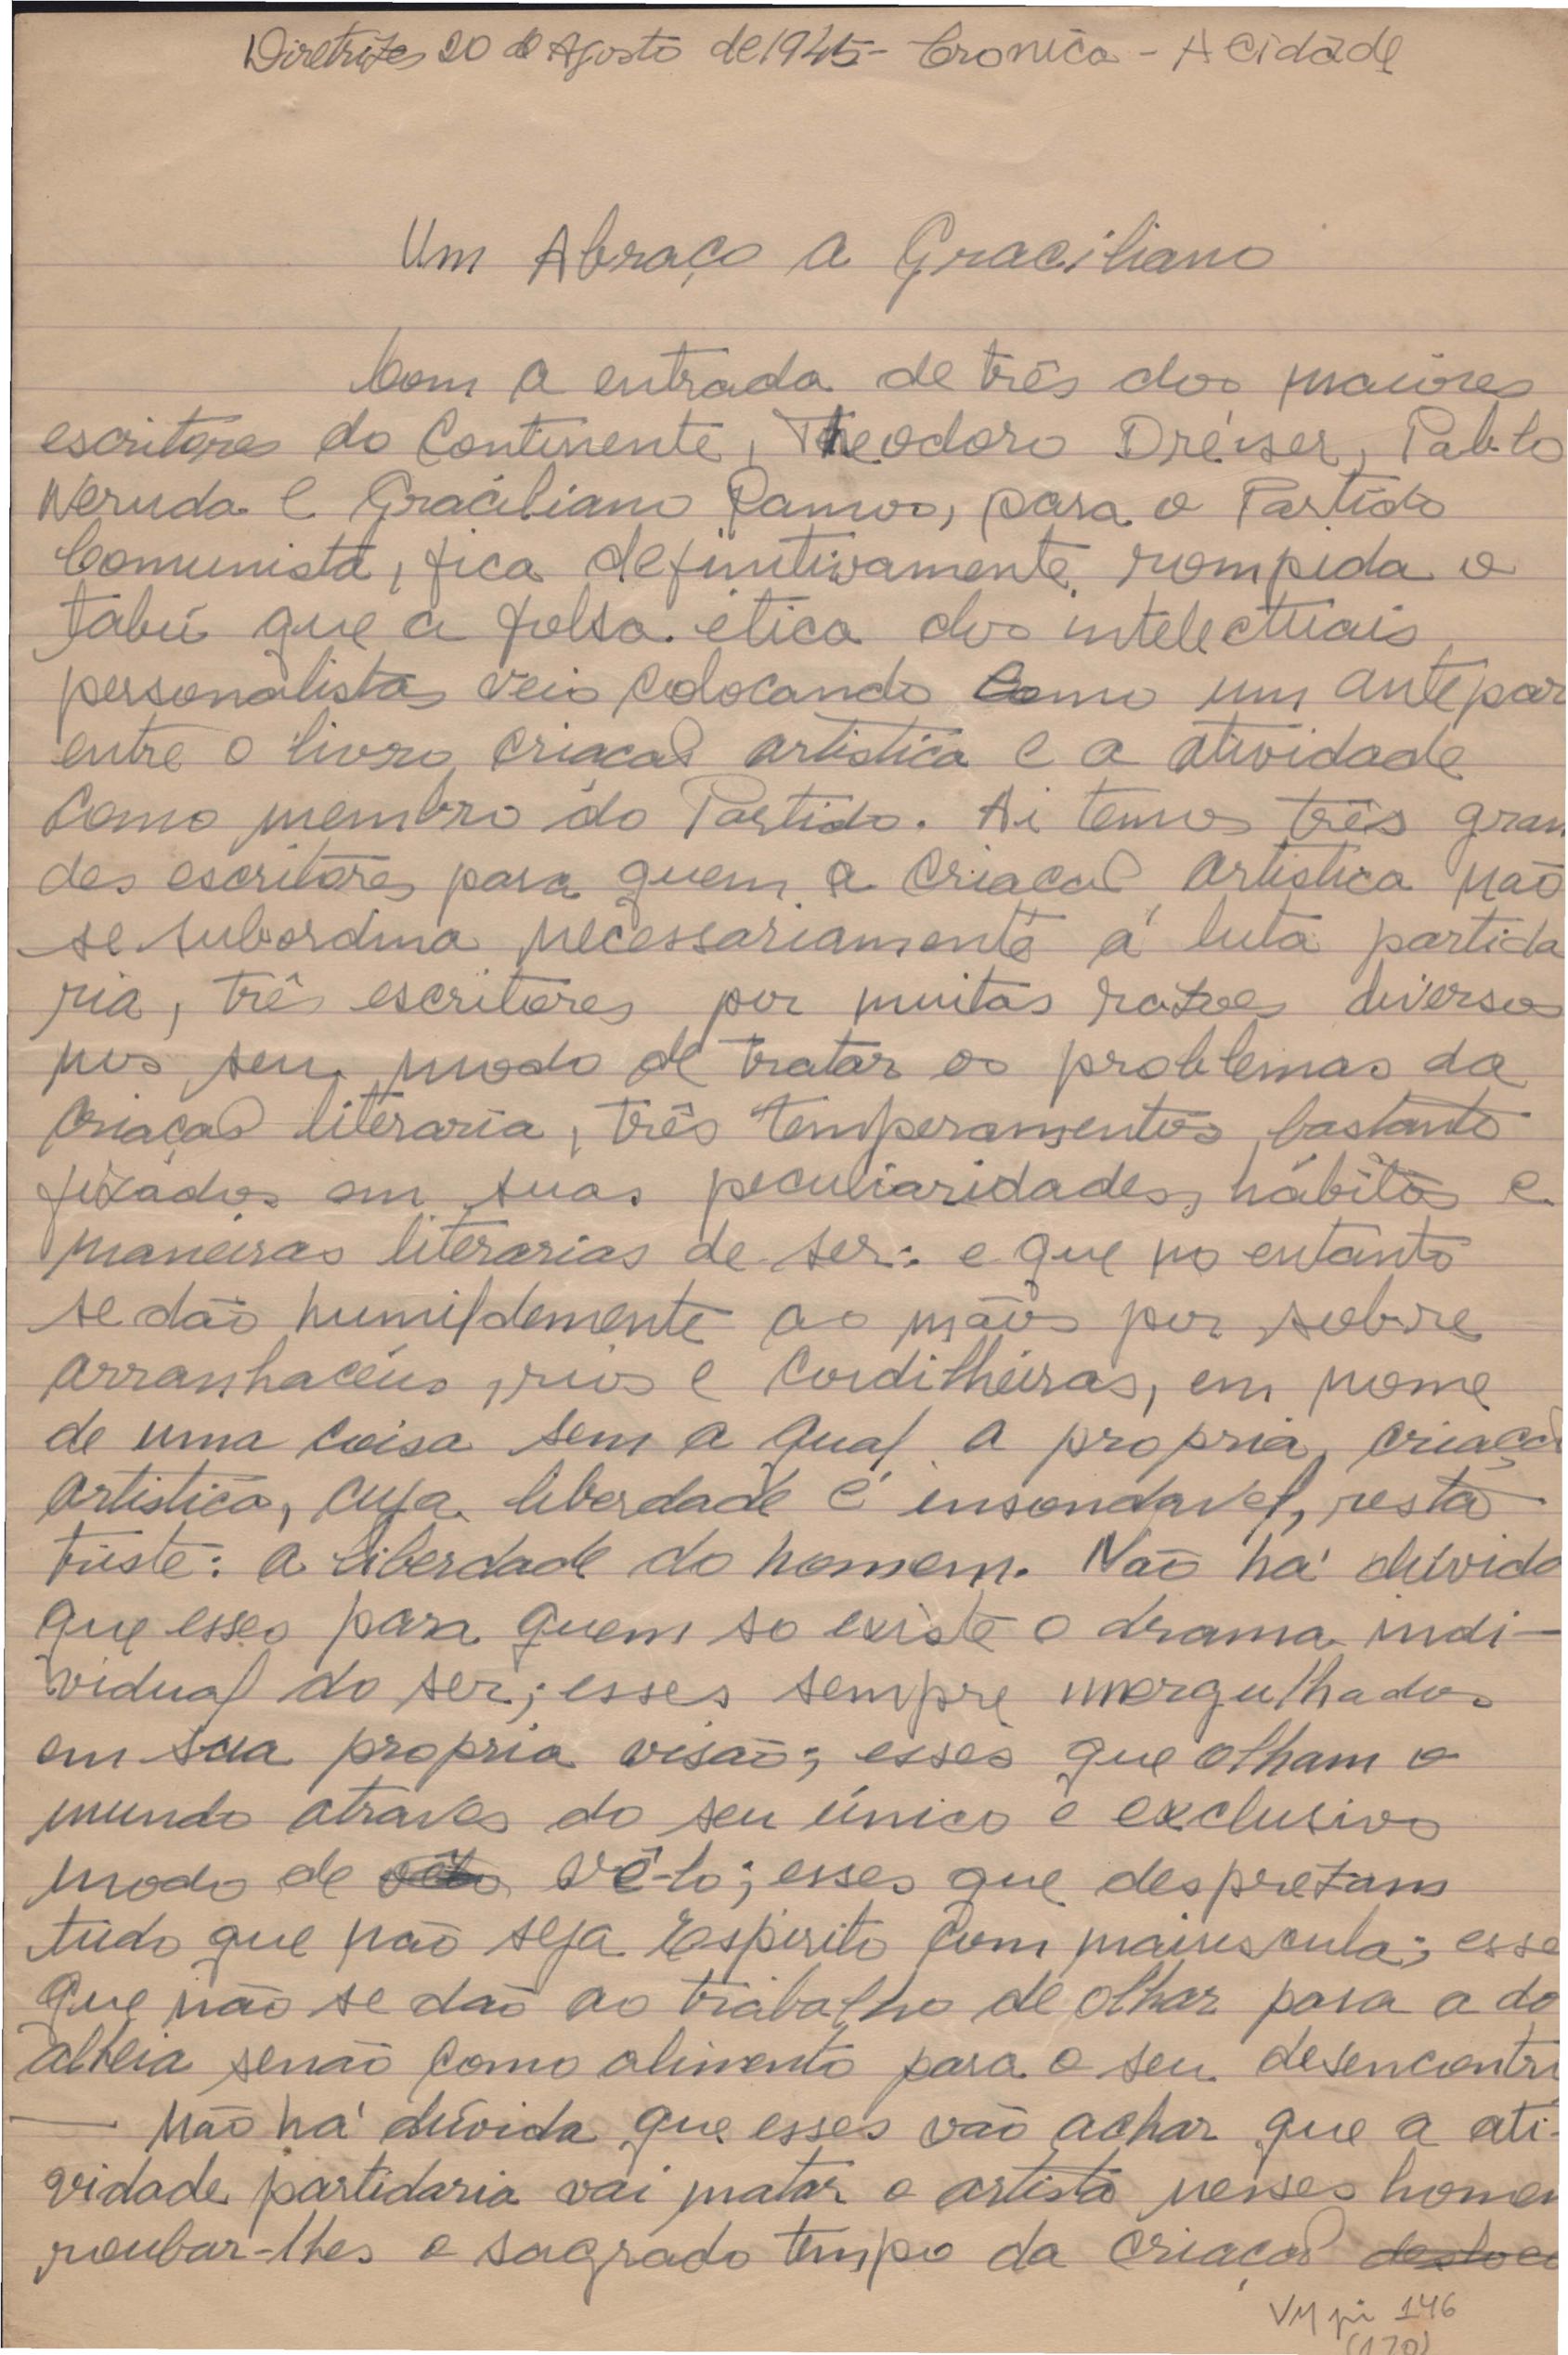 Diretrizes 20 de Agosto de 1945 - Cronica - A Cidade
Um Abraço a Graciliano
Com a entrada de três dos maiores
escritores do Continente, Theodoro Dreiser, Pablo
Neruda e Graciliano Ramos, para o Partido
Comunista, fica definitivamente rompida o
tabú que a falsa ética dos intelectuais
personalistas veio colocando como um antepar
entre o livro, criação artistica e a atividade
como membro do Partido. Ai temos três gran
des escritores para quem a criação artistica não
se subordina necessariamente á luta partida
ria, três escritores por muitas razões diversos
nos seu modo de tratar os problemas da
criação literaria, três temperamentos bastante
fixados em suas peculiaridades, hábitos e
maneiras literarias de ser: e que no entanto
se dão humildemente as mãos por sobre
arranhacéus, rios e cordilheiras, em nome
de uma coisa sem a qual a propria criação
artistica, cuja liberdade é insondavel, resta
triste: a liberdade do homem. Não há dúvida
que esses para quem so existe o drama indi-
vidual do ser; esses sempre mergulhados
em sua propria visão; esses que olham o
mundo atraves do seu único e exclusivo
modo de vê-lo; esses que desprezam
tudo que não seja Espirito com maiuscula; esse
que não se dão ao trabalho de olhar para a do
alheia senão como alimento para o seu desencontro
— não há dúvida que esses vão achar que a ati-
vidade partidaria vai matar o artista nesses homen
roubar-lhes o sagrado tempo da criação
VM pi 146
(170)